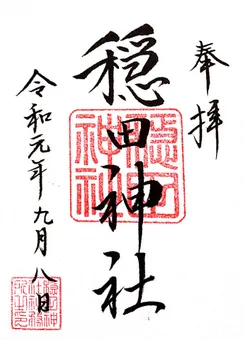 奉拝
穏田神社
令和元年九月八日
穏田神社